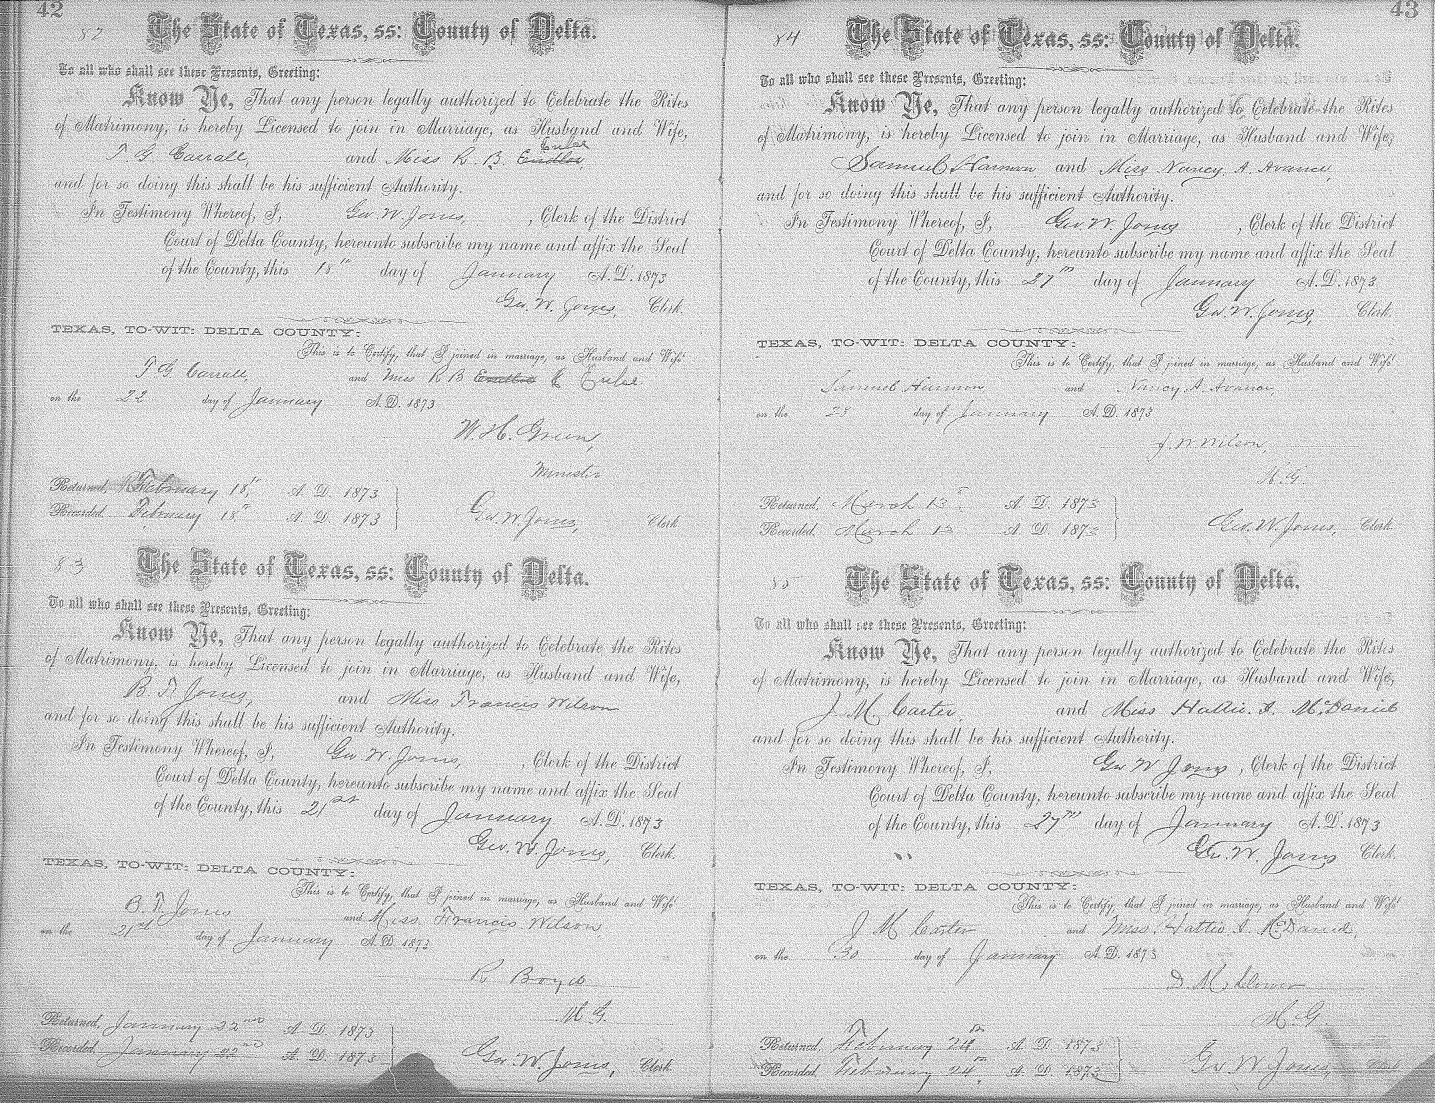 42
82
The State of Texas, ss: County of Delta.
To all who shall see these Presents, Greeting:
Know Ye, That any person legally authorized to Celebrate the Rites
of Matrimony, is hereby Licensed to join in Marriage, as Husband and Wife,
T G Carrall, and Miss R. B.
and for so doing this shall be his sufficient Authority.
In Testimony Whereof, I, Geo. W. Jones, , Clerk of the District
Court of Delta County, hereunto subscribe my name and affix the Seal
of the County, this 18th day of January A. D. 1873
Geo. W. Jones, Clerk.
TEXAS, TO-WIT: DELTA COUNTY:
This is to Certify, that I joined in marriage, as Husband and Wife
T G. Carrall, and Miss R B
on the 22 day of January A. D. 1873
W. H. Green,
Minister
Returned, February 18th, A. D. 1873
Recorded February 18th A. D. 1873 Geo. W. Jones, Clerk
83
The State of Texas, ss: County of Delta.
To all who shall see these Presents, Greeting:
Know Ye, That any person legally authorized to Celebrate the Rites
of Matrimony, is hereby Licensed to join in Marriage, as Husband and Wife,
B. F. Jones, and Miss Francis Wilson
and for so doing this shall be his sufficient Authority.
In Testimony Whereof, I, Geo W. Jones, , Clerk of the District
Court of Delta County, hereunto subscribe my name and affix the Seal
of the County, this 21st day of January A. D. 1873
Geo. W. Jones, Clerk.
TEXAS, TO-WIT: DELTA COUNTY:
This is to Certify, that I joined in marriage, as Husband and Wife
B. F. Jones and Miss Francis Wilson,
on the 21st day of January A. D. 1873
R Boyd
M. G.
Returned, January 22nd A. D. 1873
Recorded January 22nd A. D. 1873 Geo. W. Jones, Clerk.
43
84
The State of Texas, ss: County of Delta.
To all who shall see these Presents, Greeting:
Know Ye, That any person legally authorized to Celebrate the Rites
of Matrimony, is hereby Licensed to join in Marriage, as Husband and Wife,
Samuel Harmon and Miss Nancy. A. Avance,
and for so doing this shall be his sufficient Authority.
In Testimony Whereof, I, Geo. W. Jones , Clerk of the District
Court of Delta County, hereunto subscribe my name and affix the Seal
of the County, this 27th day of January A. D. 1873
Geo. W. Jones, Clerk.
TEXAS, TO-WIT: DELTA COUNTY:
This is to Certify, that I joined in marriage, as Husband and Wife
Samuel Harmon and Nancy A Avance,
on the 28 day of January A. D. 1873
J. W. Wilson,
M. G.
Returned, March 13th, A. D. 1873
Recorded. March 13 A. D. 1873 Geo. W. Jones, Clerk
85
The State of Texas, ss: County of Delta.
To all who shall see these Presents, Greeting:
Know Ye, That any person legally authorized to Celebrate the Rites
of Matrimony, is hereby Licensed to join in Marriage, as Husband and Wife,
J M Carter, and Miss Hattie. A. McDaniel
and for so doing this shall be his sufficient Authority.
In Testimony Whereof, I, Geo W Jones , Clerk of the District
Court of Delta County, hereunto subscribe my name and affix the Seal
of the County, this 27th day of January A. D. 1873
Geo. W. Jones Clerk.
TEXAS, TO-WIT: DELTA COUNTY:
This is to Certify, that I joined in marriage, as Husband and Wife
J M Carter and Miss. Hattie A. McDaniel,
on the 30 day of January A. D. 1873
D. M.
M. G
Returned, February 24th A. D. 1873
Recorded. February 24th, A. D. 1873 Geo W. Jones, Clerk